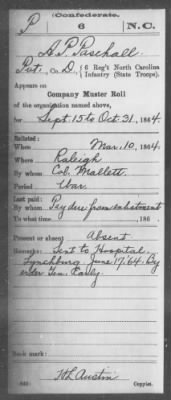 Confederate.
P 6 N.C.
A. P. Paschall
Pvt., Co. D., 6 Reg't North Carolina
Infantry (State Troops).
Appears on
Company Muster Roll
of the organization named above,
for Sept 15 to Oct 31, 1864.
Enlisted:
When Mar. 10, 1864
Where Raleigh
By whom Col. Mallett
Period War
Last paid:
By whom Pay due from enlistment
To what time , 186 .
Present or absent Absent
Remarks: Sent to Hospital
Lynchburg June 17/64. By
order Gen. Early.
Book mark:
H L Austin
Copyist.